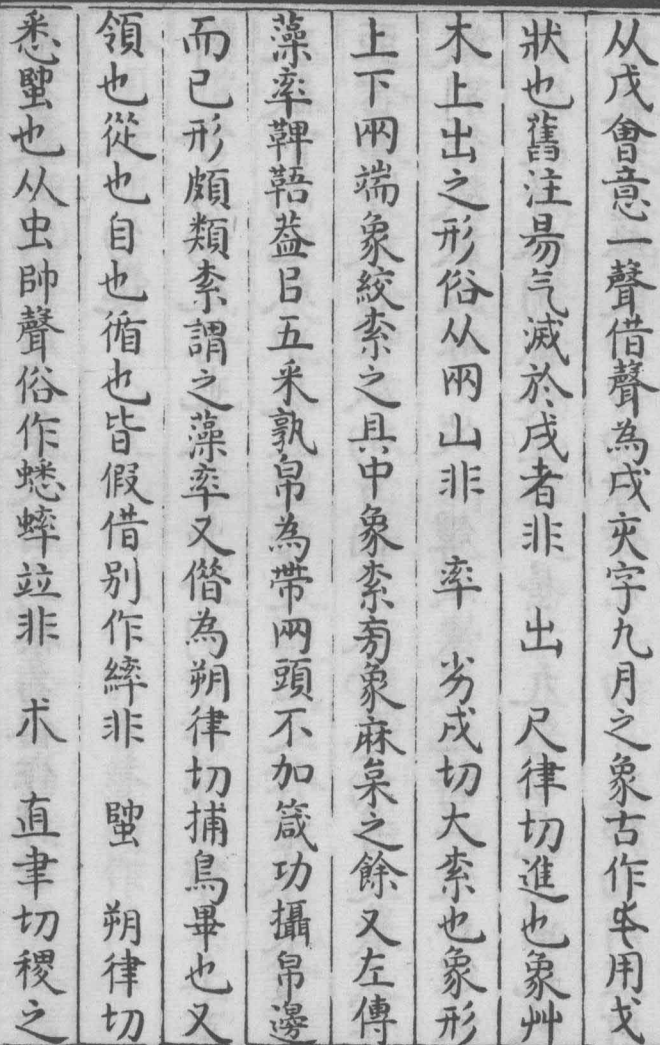 从戊會意一聲借聲為戌亥字九月之象古作𢦒用戈
狀也舊注昜气滅於戌者非　出　尺律切進也象艸
木上出之形俗从兩山非　率　劣戌切大索也象形
上下兩端象絞索之具中象索㫄象麻枲之餘又左傳
藻率鞞鞛葢㠯五采孰帛為帶兩頭不加箴功攝帛邊
而已形頗類索謂之藻率又偕為朔律切捕鳥畢也又
領也從也自也循也皆假借别作繂非　䘇　朔律切
悉䘇也从虫帥聲俗作蟋蟀竝非　朮　直聿切稷之